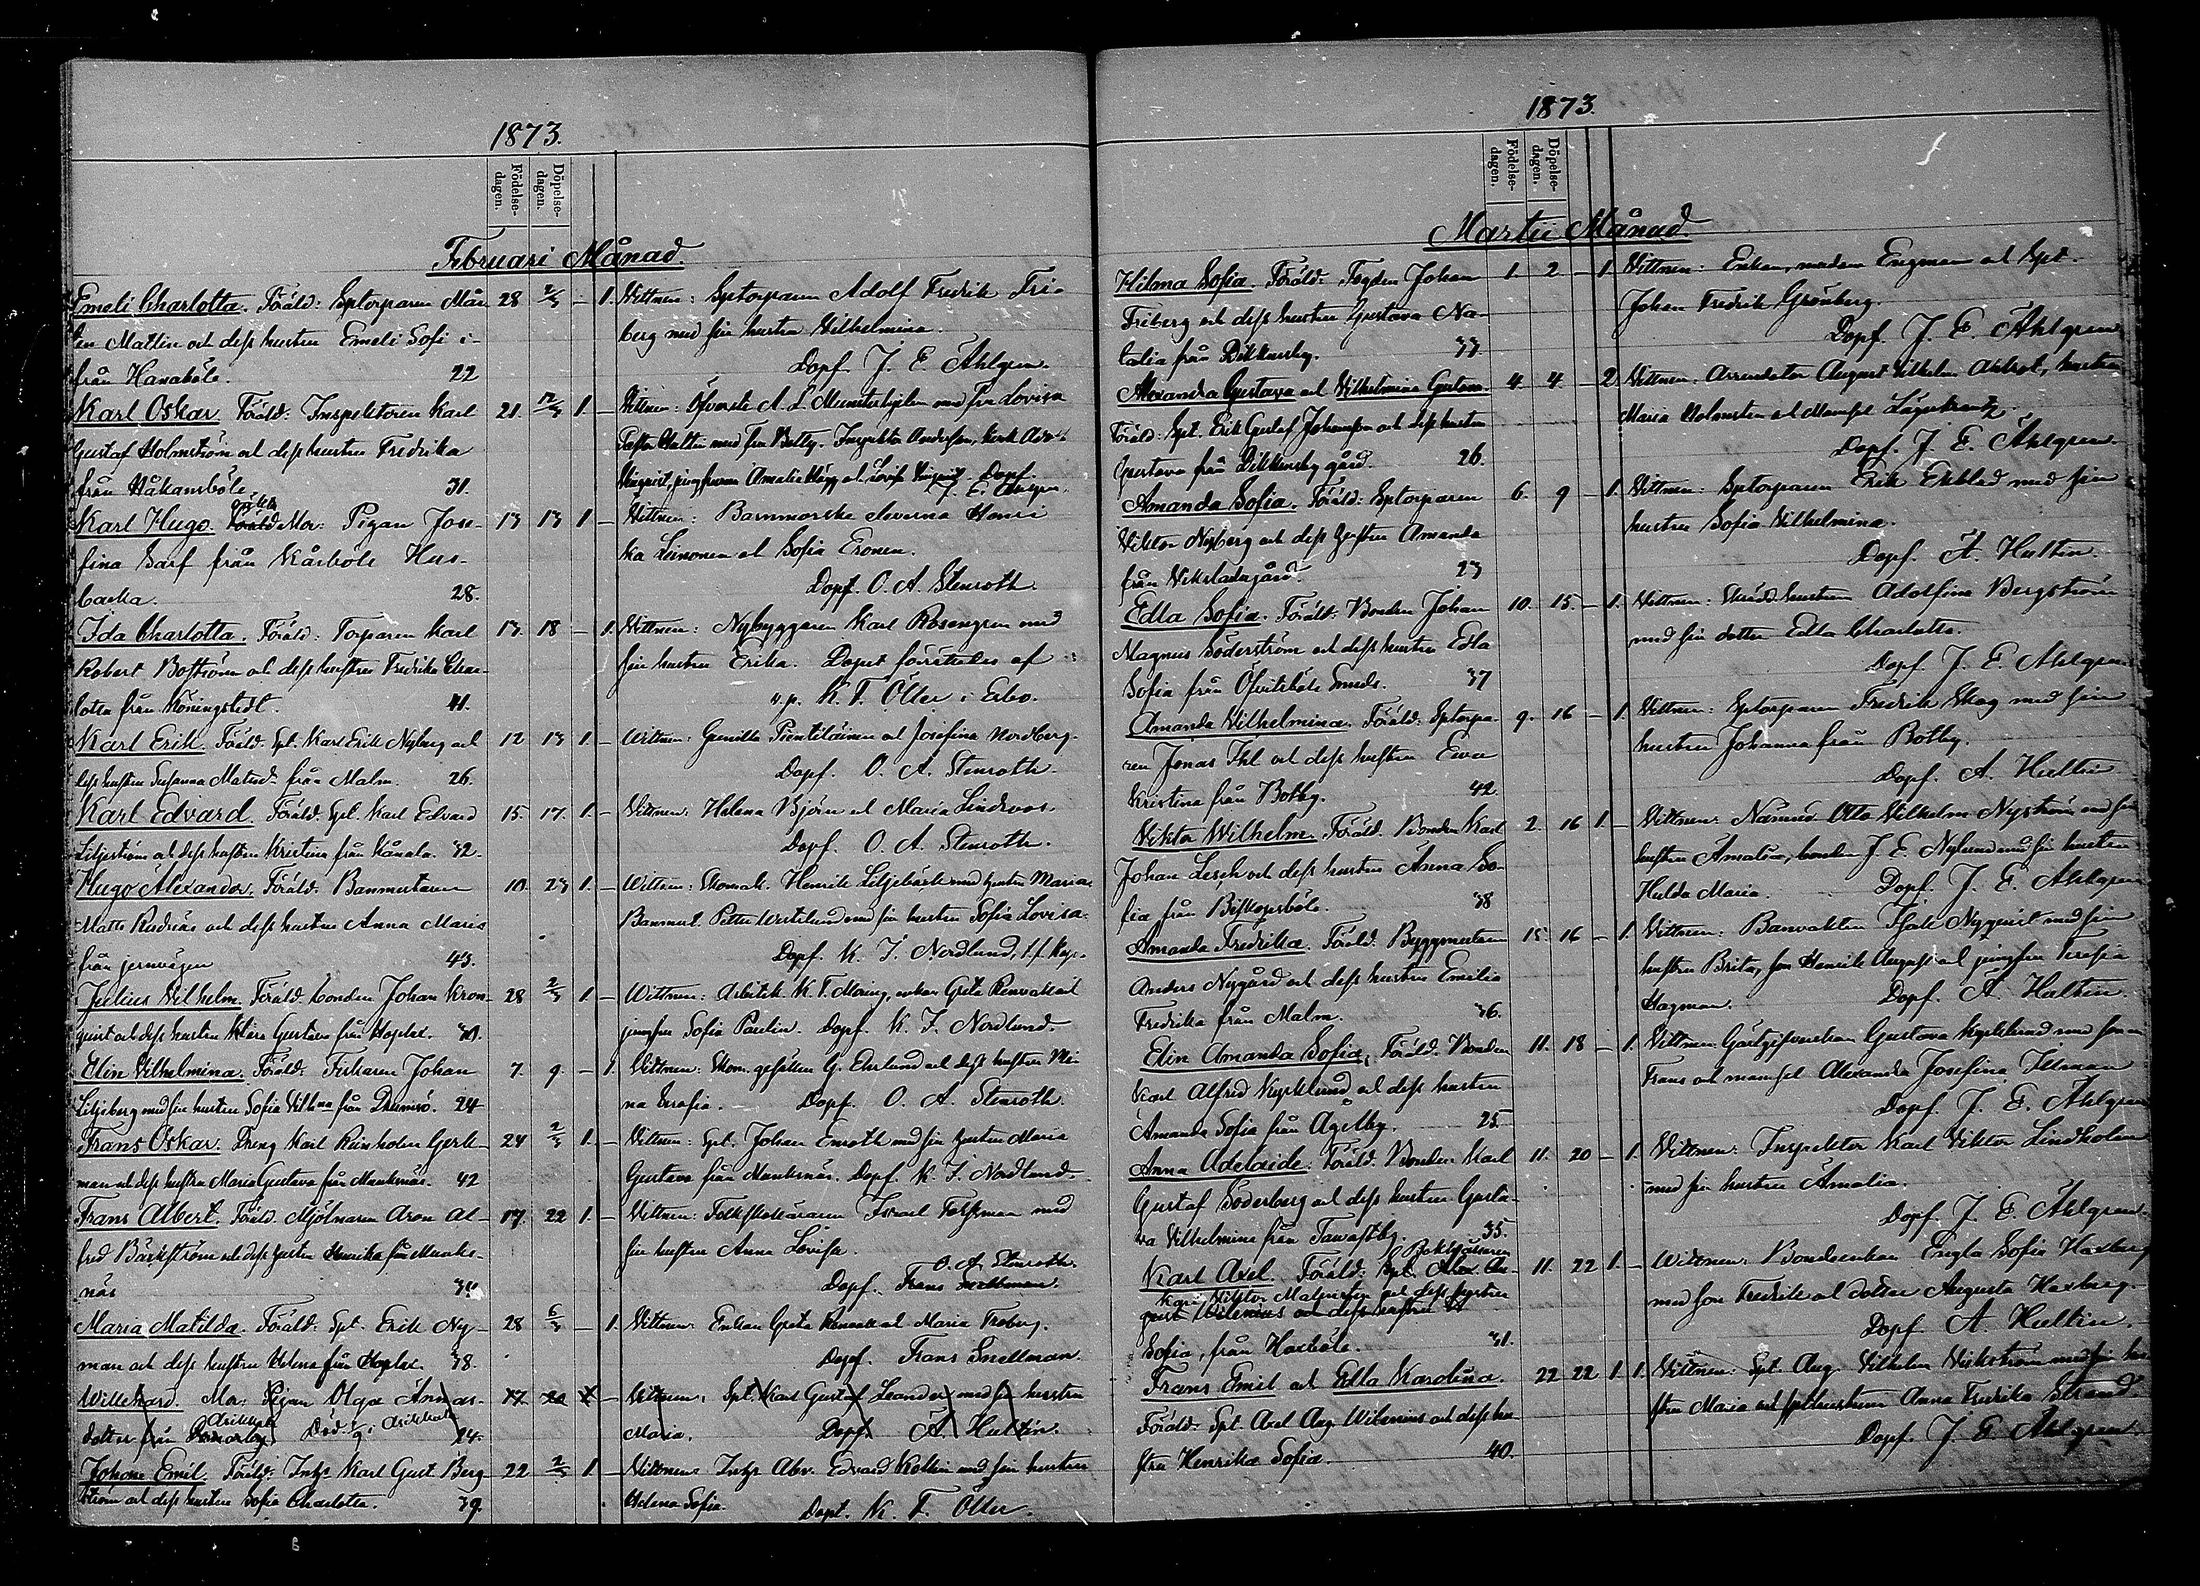 1873.
Födelse-dagen.
Döpelse-dagen.
Februari Månad.
Emeli Charlotta. Föräld: Sptorparen Mår- 28 2/3 – 1. Vittnen: Sptorparen Adolf Fredrik Fri-
ten Mattin och dess hustru Emeli Sofi i- berg med sin hustru Vilhelmina.
från Hanaböle. 22 Döpf. J. E. Ahlgren.
Karl Oskar. Föräld: Inspektoren Karl 21. 12/3 1. – Vittnen: Öfverste A. L. Munsterhjelm med fru Lovisa
Gustaf Holmström och dess hustru Fredrika Pastor Hultin med fru Betty. Inspektor Andersson,
från Håkansböle. 31. jungfrurna Amalia Hägg och Lovisa Döpf. J. E. Ahlgren.
Karl Hugo. Mor: Pigan Jose- 13 13 1 – Vittnen: Barnmorske eleverna Henri
fina Sarf från Kårböle Hus- ka Leinonen och Sofia Eronen.
backa. 28. Döpf. O. A. Stenroth.
Ida Charlotta. Föräld: Torparen Karl 13. 18 – 1. Vittnen: Nybyggaren Karl Rosengren med
Robert Boström och dess hustru Fredrika Char- sin hustru Erika. Dopet förrättades af
lotta från Köningstedt. 41. v.p. K. F. Öller i Esbo.
Karl Erik. Föräld. Spt. Karl Erik Nyberg och 12 13 1. – Vittnen: Gunilla Pentiläinen och Josefina Nordberg.
dess hustru Susanna Matsd. från Malm. 26. Döpf. O. A. Stenroth.
Karl Edvard. Föräld. Spt. Karl Edvard 15. 17. 1. – Vittnen: Helena Björn och Maria Lindroos.
Liljeström och dess hustru Kristina från Kånala. 32. Döpf. O. A. Stenroth.
Hugo Alexander. Föräld. Banmästaren 10 23 1. – Vittnen: Skomak. Henrik Liljebäck med hustru Maria.
Matts Rudnäs och dess hustru Anna Maria Banmast. Petter Westerlund med sin hustru Sofia Lovisa.
från jernvägen 43. Döpf. K. J. Nordlund,
Julius Vilhelm. Föräld. bonden Johan Kron- 28 2/3 1. – Vittnen: Arbetsk. K. F. Moring, enkan Greta Renvall och
quist och dess hustru Maria Gustava från Hoplax. 30. jungfru Sofia Paulin. Döpf. K. J. Nordlund.
Elin Vilhelmina. Föräld: Fiskaren Johan 7. 9. – 1. Vittnen: Skom. gesällen G. Ekelund och dess hustru Mi-
Liljeberg med sin hustru Sofia Vilh:na från Drumsö. 24 na Serafia. Döpf. O. A. Stenroth.
Frans Oskar. Dräng Karl Reinholm Gerk- 24 2/3 1. – Vittnen: Spt. Johan Enroth med sin hustru Maria
man och dess hustru Maria Gustava från Munknäs. 42 Gustava från Munknäs. Döpf. K. J. Nordlund.
Frans Albert. Föräld. Mjölnaren Aron Al- 17 22 1. – Vittnen: Folkskolläraren Israel Forsman med
fred Bäckström och dess hustru Henrika från Munks- sin hustru Anna Lovisa.
näs Döpf. O. A. Stenroth.
Maria Matilda. Föräld: Spt. Erik Ny- 28 6/3 – 1. Vittnen: Enkan Greta Renvall och Maria Froberg.
man och dess hustru Helena från Hoplax. 38. Döpf. Frans Snellman.
Willehard. Mor: Pigan Olga Annas- 17 20 1 – Vittnen: Spt. Karl Gustaf Leander med sin hustru
dotter från 24. Maria. Döpf. A. Hultin.
Johan Emil. Föräld. Inhys Karl Gust. Berg 22 2/3 1 – Vittnen: Inhys Alex. Edvard Kollin med sin hustru
ström och dess hustru Sofia Charlotta. 39. Helena Sofia. Döpt. K. F. Öller.
1873.
Födelse-dagen.
Döpelse-dagen.
Martii Månad.
Hilma Sofia. Föräld: Fogden Johan 1. 2 – 1. Vittnen: Enkan, madam Engman och Spt.
Friberg och dess hustru Gustava Na- Johan Fredrik Grönberg.
talia från Dikkursby. 33. Döpf. J. E. Ahlgren
Alexandra Gustava och Vilhelmina Gustava. 4. 4 – 2 Vittnen: Arrendator August Vilhelm Ahlrot, hustru
Föräld: Spt. Erik Gustaf Johansson och dess hustru Maria Holmsten och Mamsel Lagerkrantz.
Gustava från Dikkursby gård. 26. Döpf. J. E. Ahlgren.
Amanda Sofia. Föräld: Sptorparen 6. 9 – 1. Vittnen: Sptorparen Erik Ekblad med sin
Viktor Nyberg och dess hustru Amanda hustru Sofia Vilhelmina.
från Vikstadsgård. 23 Döpf. A. Hultin
Edla Sofia. Föräld: Bonden Johan 10. 15. – 1. Vittnen: Skrädd. hustrun Adolfina Bergström
Magnus Söderström och dess hustru Edla med sin dotter Edla Charlotta.
Sofia från Öfvitsböle Smeds. 37 Döpf. J. E. Ahlgren
Amanda Vilhelmina. Föräld: Sptorpa- 9. 16 – 1. Vittnen: Sptorparen Fredrik Skog med sin
ren Jonas Ihl och dess hustru Eva hustru Johanna från Botby.
Kristina från Botby. 42. Döpf. A. Hultin
Viktor Wilhelm. Föräld. Bonden Karl 2. 16 1. – Vittnen: Nämnd. Otto Vilhelm Nyström med sin
Johan Lesch och dess hustru Anna So- hustru Amalia, bonden J. E. Nylund med sin hustru
fia från Biskopsböle. 38 Hulda Maria. Döpf. J. E. Ahlgren
Amanda Fredrika. Föräld. Byggmästaren 15. 16 – 1. Vittnen: Banvakten Isak Nyqvist med sin
Anders Nygård och dess hustru Emilia hustru Brita, son Henrik August och jungfru Teresia
Fredrika från Malm. 36. Hagman. Döpf. A. Hultin.
Elin Amanda Sofia, Föräld. Bonden 11. 18 – 1. Vittnen: Gästgifverenkan Gustava Kyrklund med sonen
Karl Alfred Kyrklund och dess hustru Frans och mamsel Alexandra Josefina Illman
Amanda Sofia från Åggelby. 25. Döpf. J. E. Ahlgren
Anna Adelaide. Föräld. Bonden Karl 11. 20 – 1. Vittnen: Inspektor Karl Viktor Lindholm
Gustaf Söderberg och dess hustru Gusta- med sin hustru Amalia.
va Vilhelmina från Tavastby. 35. Döpf. J. E. Ahlgren.
Karl Axel. Föräld: 11. 22 1. – Vittnen: Bondeenkan Engla Sofia Haxberg
med son Fredrik och dotter Augusta Haxberg.
Sofia, från Haxböle. 31. Döpf. A. Hultin.
Frans Emil och Edla Karolina. 22 22 1 1. Vittnen: Spt. Aug. Vilhelm Vickström med sin hu-
Föräld. Spt. Axel Aug. Wilenius och dess hu- stru Maria och spthustrun Anna Fredrika Strand
stru Henrika Sofia. 40. Döpf. J. E. Ahlgren.